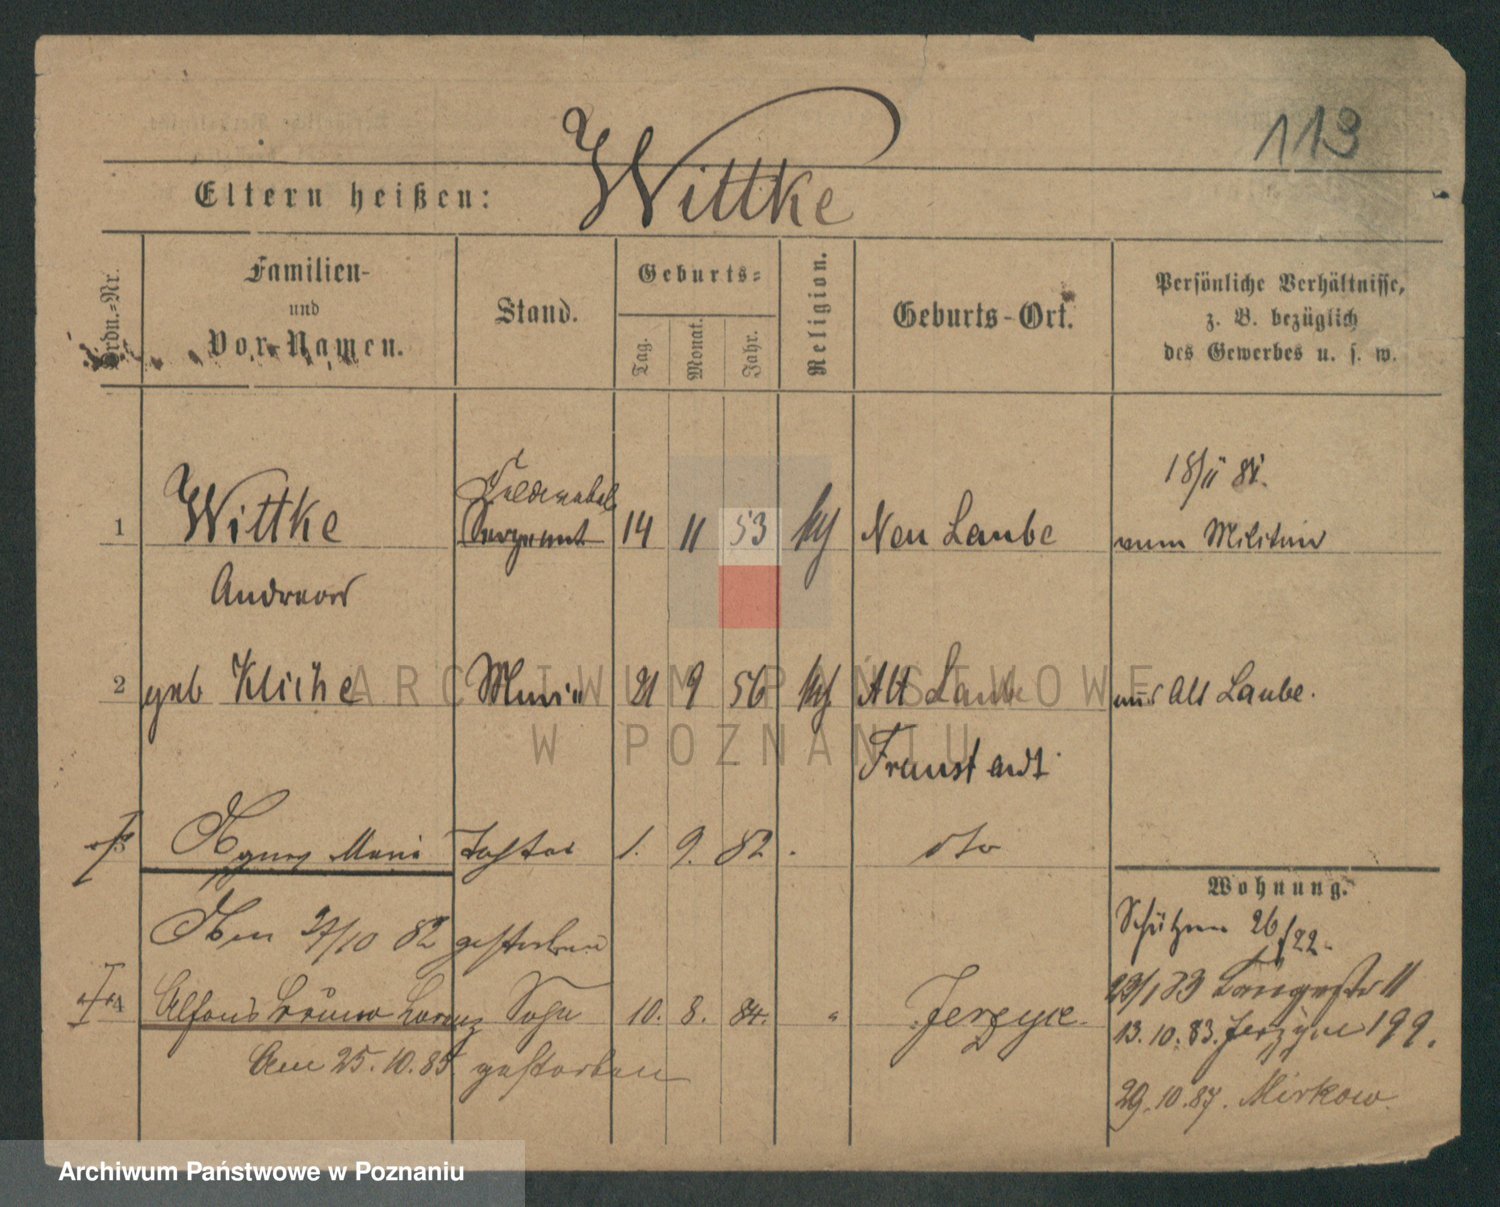 113
Eltern heißen: Wittke
Ordn.-Nr.
Familien-
und
Vor-Namen.
Stand.
Geburts-
Tag.
Monat.
Jahr.
Religion.
Geburts-Ort.
Persönliche Verhältnisse,
z. B. bezüglich
des Gewerbes u. s. w.
18/11 81.
Feldwebel
1 Wittke Sergeant 14 11 53 Neu Laube vom Militair
Andreas
2 geb Kliche Marie 21 9 56 Alt Laube aus Alt Laube.
Fraustadt
3 Agnes Marie Tochter 1. 9. 82 dto
Wohnung.
Schützen 26/22.
Am 27/10 82 gestorben
4 Alfons Bruno Lorenz Sohn 10. 8. 84. " Jerzyce.
23/1 83 Langestr 11
13. 10. 83. Jerzyce 199.
Am 25. 10. 85 gestorben
29. 10. 87. Mirkow
ARCHIWUM PAŃSTWOWE
W POZNANIU
Archiwum Państwowe w Poznaniu